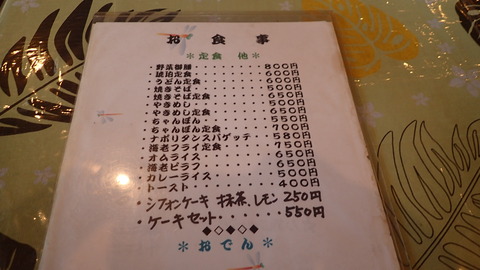 お食事
＊定食 他＊
・野菜御膳・・・・・・・・800円
・琥珀定食・・・・・・・・600円
・うどん定食・・・・・・・600円
・焼きそば・・・・・・・・500円
・焼きそば定食・・・・・・650円
・やきめし・・・・・・・・500円
・やきめし定食・・・・・・650円
・ちゃんぽん・・・・・・・550円
・ちゃんぽん定食・・・・・700円
・ナポリタンスパゲッテ・・580円
・海老フライ定食・・・・・750円
・オムライス・・・・・・・650円
・海老ピラフ・・・・・・・650円
・カレーライス・・・・・・500円
・トースト・・・・・・・・400円
・シフォンケーキ 抹茶、レモン 250円
・ケーキセット・・・・・550円
◆◇◆◇◆
＊おでん＊